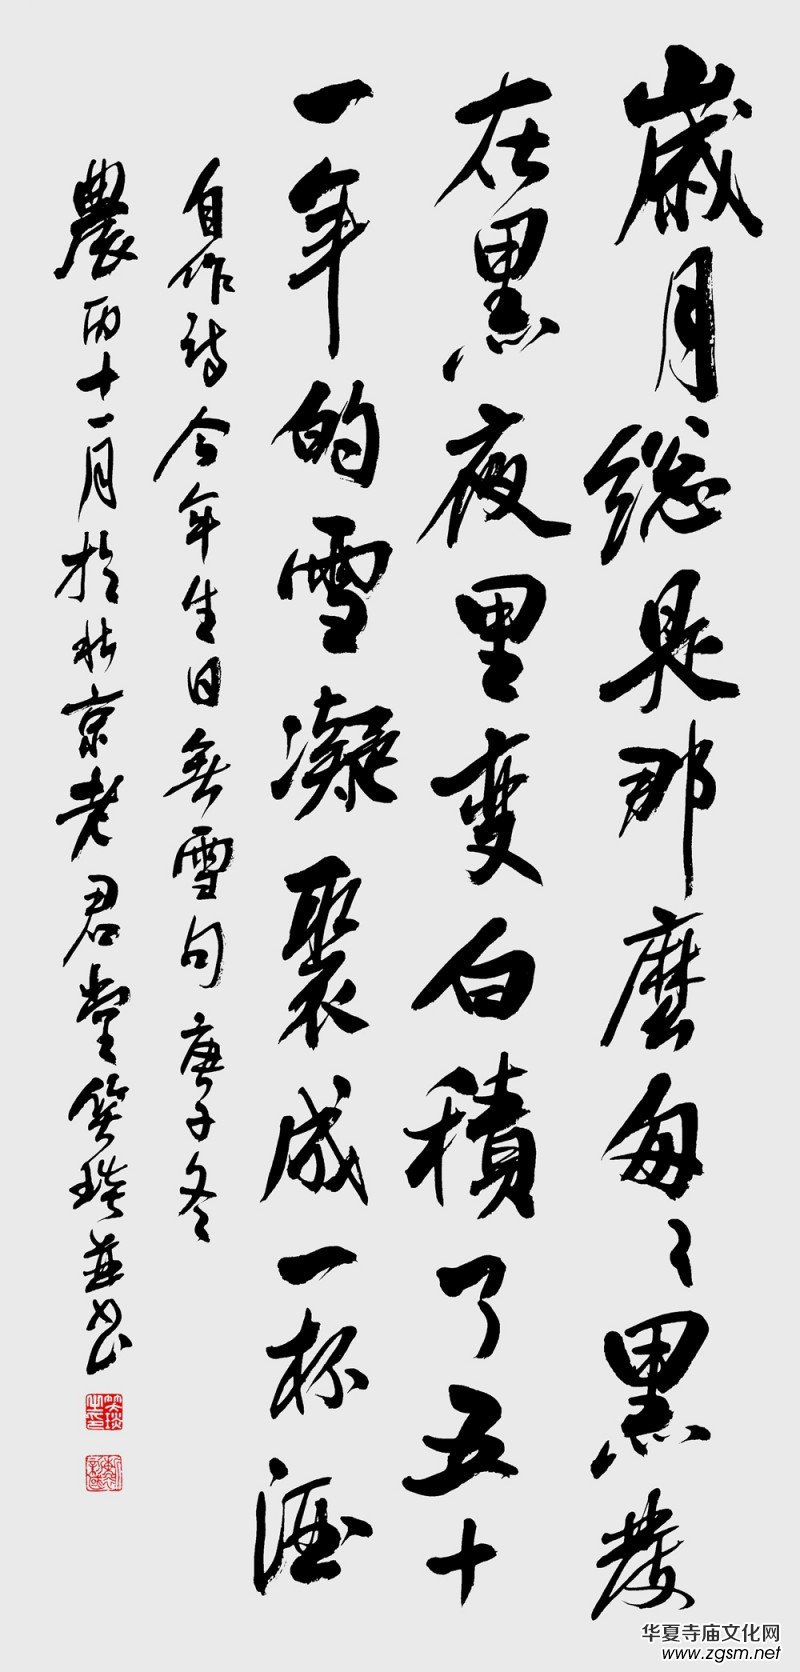 歲月總是那麼匆〻黑髮
在黑夜里变白積了五十
一年的雪凝聚成一杯酒
自作詩今年生日無雪句庚子冬
農历十一月於北京老君堂笑琰並书
华夏寺庙文化网
www.zgsm.net